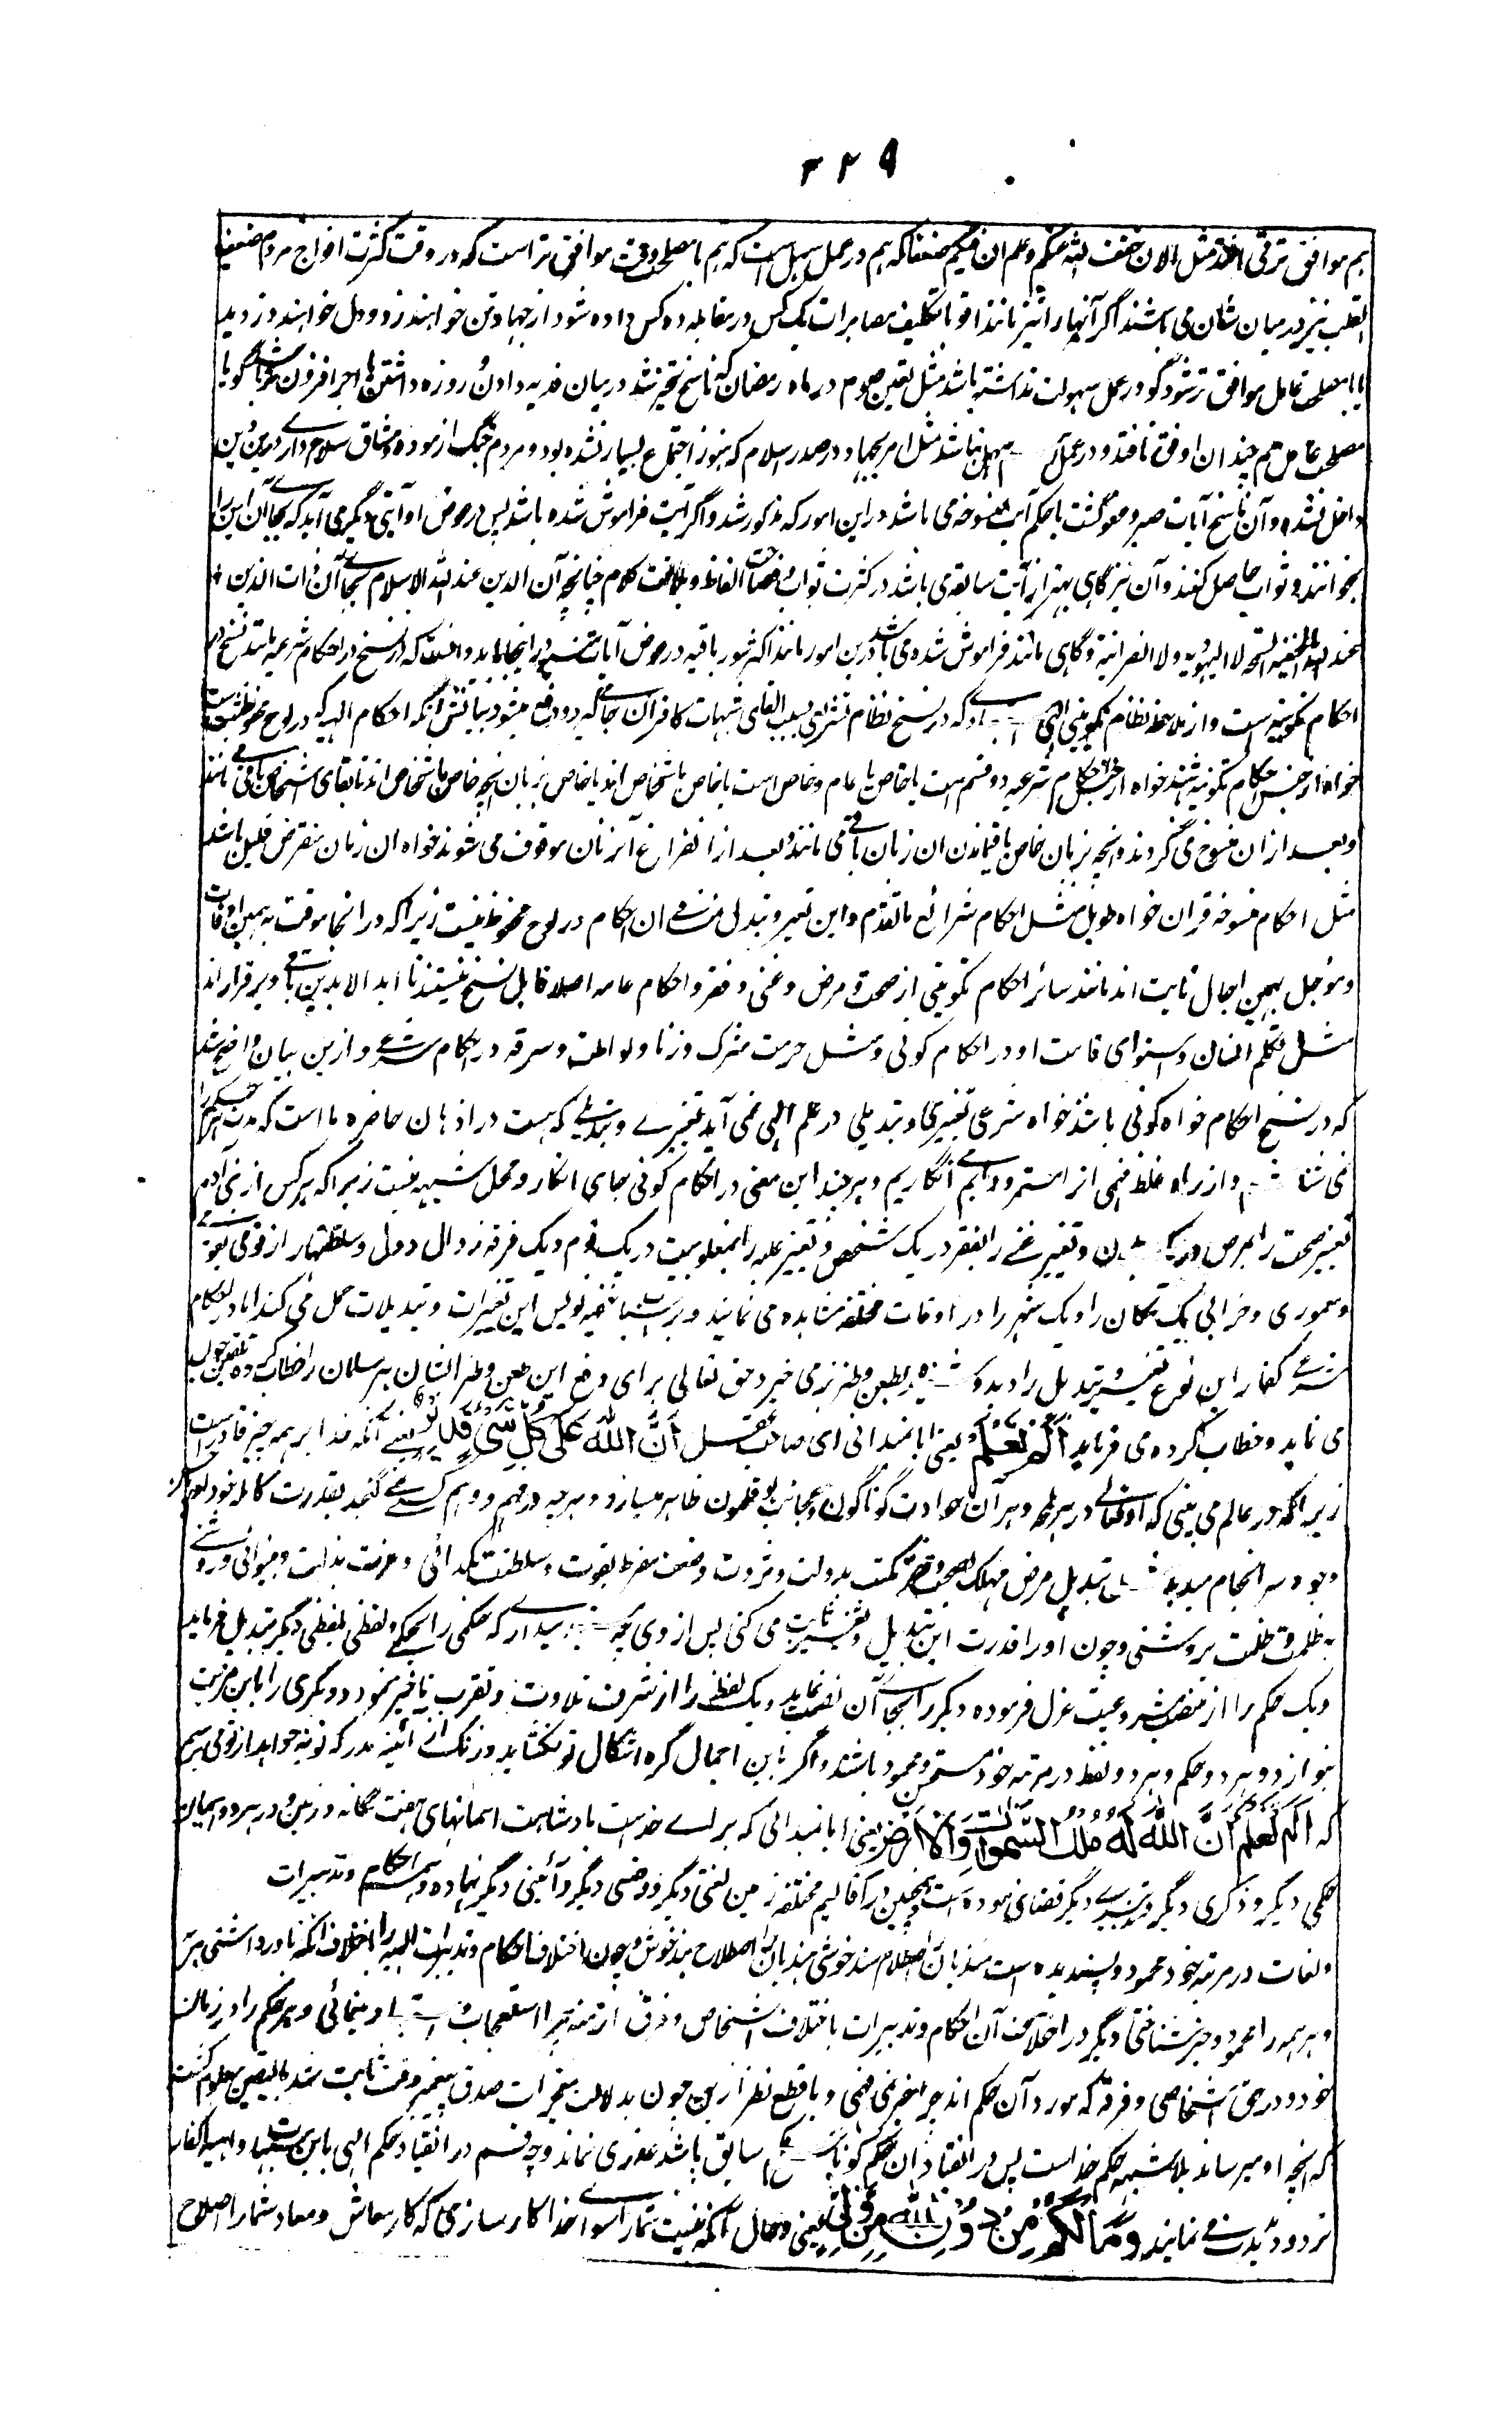 ۳۲۹
هم موافق تر قی افتد مثل الان خفف الله عنکم وعلم ان فیکم ضعفا که هم در عمل سهل است که هم با مصلحت وقت موافق تر است که در وقت کثرت افواج مردم ضعیف
القلب نیز در میان شان می باشند اگر آنها را نیز مانند اقویا تکلیف مصابرات یک کس در مقابله ده کس داده شود از جهاد تن خواهند زد و دل خواهند دزدید
یا با مصلحت عامل موافق تر شود گو در عمل سهولت نداشته باشد مثل تعین صوم در ماه رمضان که ناسخ تخیر شد در میان فدیه دادن و روزه داشتن یا اجر افزون تر باشد گو با
مصلحت عامل هم چندان اوفق نافتد و در عمل سهل نباشد مثل امر بجهاد در صدر اسلام که هنوز اجتماع بسیار نشده بود و مردم جنگ آزموده و مشاق سلاح داری درین دین
داخل نشده و آن ناسخ آیات صبر و عفو گشت یا حکم آیت منسوخه می باشد در این امور که مذکور شد و اگر آیت فراموش شده باشد پس در عوض او آیتی دیگر می آید که بجای آن این را
بخوانند و ثواب حاصل کنند و آن نیز گاهی بهتر از آیت سابقه می باشد در کثرت ثواب و فصاحت الفاظ و بلاغت کلام چنانچه آن الدین عند الله الاسلام بجای آن ذات الدین
عند الله الحنفیة السمحة لا الیهودیة ولا النصرانیة و گاهی مانند فراموش شده می باشد درین امور مانند اکثر سور باقیه در عوض آیات منسیه و اینجا باید دانست که نسخ در احکام شرعیه مانند نسخ در
احکام تکوینیه است و از ملاحظه نظام تکوینی الهی که در نسخ نظام تشریعی بسبب القای شبهات کافران بجای که رود دفع میشود بیانش آنکه احکام الهیه که در لوح محفوظ ثبت است
خواه از جنس احکام تکوینیه باشند خواه از جنس احکام شرعیه دو قسم است یا خاص یا عام و خاص است یا خاص باشخاص اند یا خاص بزمان انچه خاص باشخاص اند تا بقای اشخاص باقی مانند
و بعد ازان منسوخ می گردند و انچه بزمان خاص تا باقیماندن آن زمان باقی می مانند و بعد از انقراض آن زمان موقوف می شوند خواه ان زمان منقرض قلیل باشد
مثل احکام منسوخه قران خواه طویل مثل احکام شرائع ما تقدم و این تغیر و تبدل منافی ان احکام در لوح محفوظ نیست زیرا که در انجا موقت به همین اوقات
و موجل بهمین اجال ثابت اند مانند سائر احکام تکوینی از صحت و مرض و غنی و فقر و احکام عامه اصلا قابل نسخ نیستند تا ابد الابدین باقی و برقرار اند
مثل تکلم انسان و استوای قامت او در احکام کونی و مثل حرمت شرک و زنا و لواطت و سرقه در احکام شرعی و ازین بیان واضح شد
که در نسخ احکام خواه کونی باشد خواه شرعی تغییری و تبدیلی در علم الهی نمی آید تغییرے و تبدیلے که هست در اذهان حاضره ما است که مدت هر حکم را
نمی شناسیم و از راه غلط فهمی انرا مستمر و دایم انگاریم و هر چند این معنی در احکام کونی جای انکار و محل شبهه نیست زیرا که هر کس از بنی آدم
تغییر صحت را بمرض و تغییر غنی را بفقر در یک شخص و تغییر غلبه را بمغلوبیت در یک قوم و یک فرقه زوال دول و سلطنتها از قومی بقومی
و معموری و خرابی یک مکان را و یک شهر را در اوقات مختلفه مشاهده می نمایند و این تغیرات و تبدیلات حمل می کنند اما در احکام
شرعی کفار این نوع تغییر و تبدیل را دیده بطعن و طنز بر می خیزد حق تعالی برای دفع این طعن و طنز ایشان هر مسلمان را خطاب کرده تلقین جواب
می نماید و خطاب کرده می فرماید أَلَمْ تَعْلَمْ یعنی ایا نمیدانی ای صاحب عقل أَنَّ اللَّهَ عَلَى كُلِّ شَيْءٍ قَدِيرٌ یعنے آنکه خدا بر همه چیز قادر است
زیرا که در عالم می بینی که اوتعالی در هر لمحه و هر آن حوادث گوناگون و عجائب بوقلمون ظاهر میسازد و هر چه در فهم و وهم کسے نمی گنجد بقدرت کامله خود
وجود سر انجام میدهد تبدیل مرض مهلک بصحت و فقر و نکبت بدولت و ثروت و ضعف مفرط بقوت و سلطنت بگدائی و عزت بذلت و روشنی
به ظلمت و ظلمت بروشنی و چون او را قدرت این تبدیل و تغییر ثابت می کنی پس از وی چه که حکمی را بحکمی و لفظی بلفظی دیگر تبدیل فرماید
و یک حکم را از منصب مشروعیت عزل فرموده دیگر را بجای آن نصب نماید و یک لفظ را از شرف تلاوت و تقرب تاخیر نموده دیگری را باین مزیت
بنوازد و هر دو حکم و هر دو لفظ در مرتبه خود مستحسن و محمود باشند و اگر باین اجمال گره اشکال تو نکشاید و زنگ از آئینه مدرکه تو نه رود از تو می پرسم
که أَلَمْ تَعْلَمْ أَنَّ اللَّهَ لَهُ مُلْكُ السَّمٰوٰتِ وَالْأَرْضِ یعنی ایا نمیدانی که برای خداست بادشاهت اسمانهای هفت گانه و زمین و در هر دو اسمان
حکمی دیگر و ذکری دیگر و تدبیرے دیگر قضا فرموده است و همچنین در اقالیم مختلفه زمین لغتی دیگر و وضعی دیگر و آئینی دیگر نهاده و همه احکام و تدبیرات
و لغات در مرتبه خود محمود و پسندیده است هندیان را اصطلاح هند خوش و چون اختلاف احکام و تدبیرات الهیه را
و همه را محمود و خیر شناختی دیگر در اختلاف آن احکام و تدبیرات باختلاف اشخاص و فرق و ازمنه چرا استعجاب و می نمائی و هر حکم را در زمان
خود و در حق اشخاصی و فرقه که مورد آن حکم اند چرا خیر نمی فهمی و باقطع نظر ازین چون بدلالت معجزات صدق پیغمبر وقت ثابت شد بالیقین معلوم گشت
که انچه او میرساند بلا شبهه حکم خداست پس در انقیاد ان حکم گو ناسخ حکم سابق باشد عذری نماند و چه قسم در انقیاد حکم الهی باین شبهات واهیه کفار
تردد و می نمایند وَمَا لَكُمْ مِنْ دُونِ اللَّهِ مِنْ وَلِيٍّ یعنی و حال آنکه نیست شمارا سوای خدا کارسازی که کار معاش و معاد شما را اصلاح